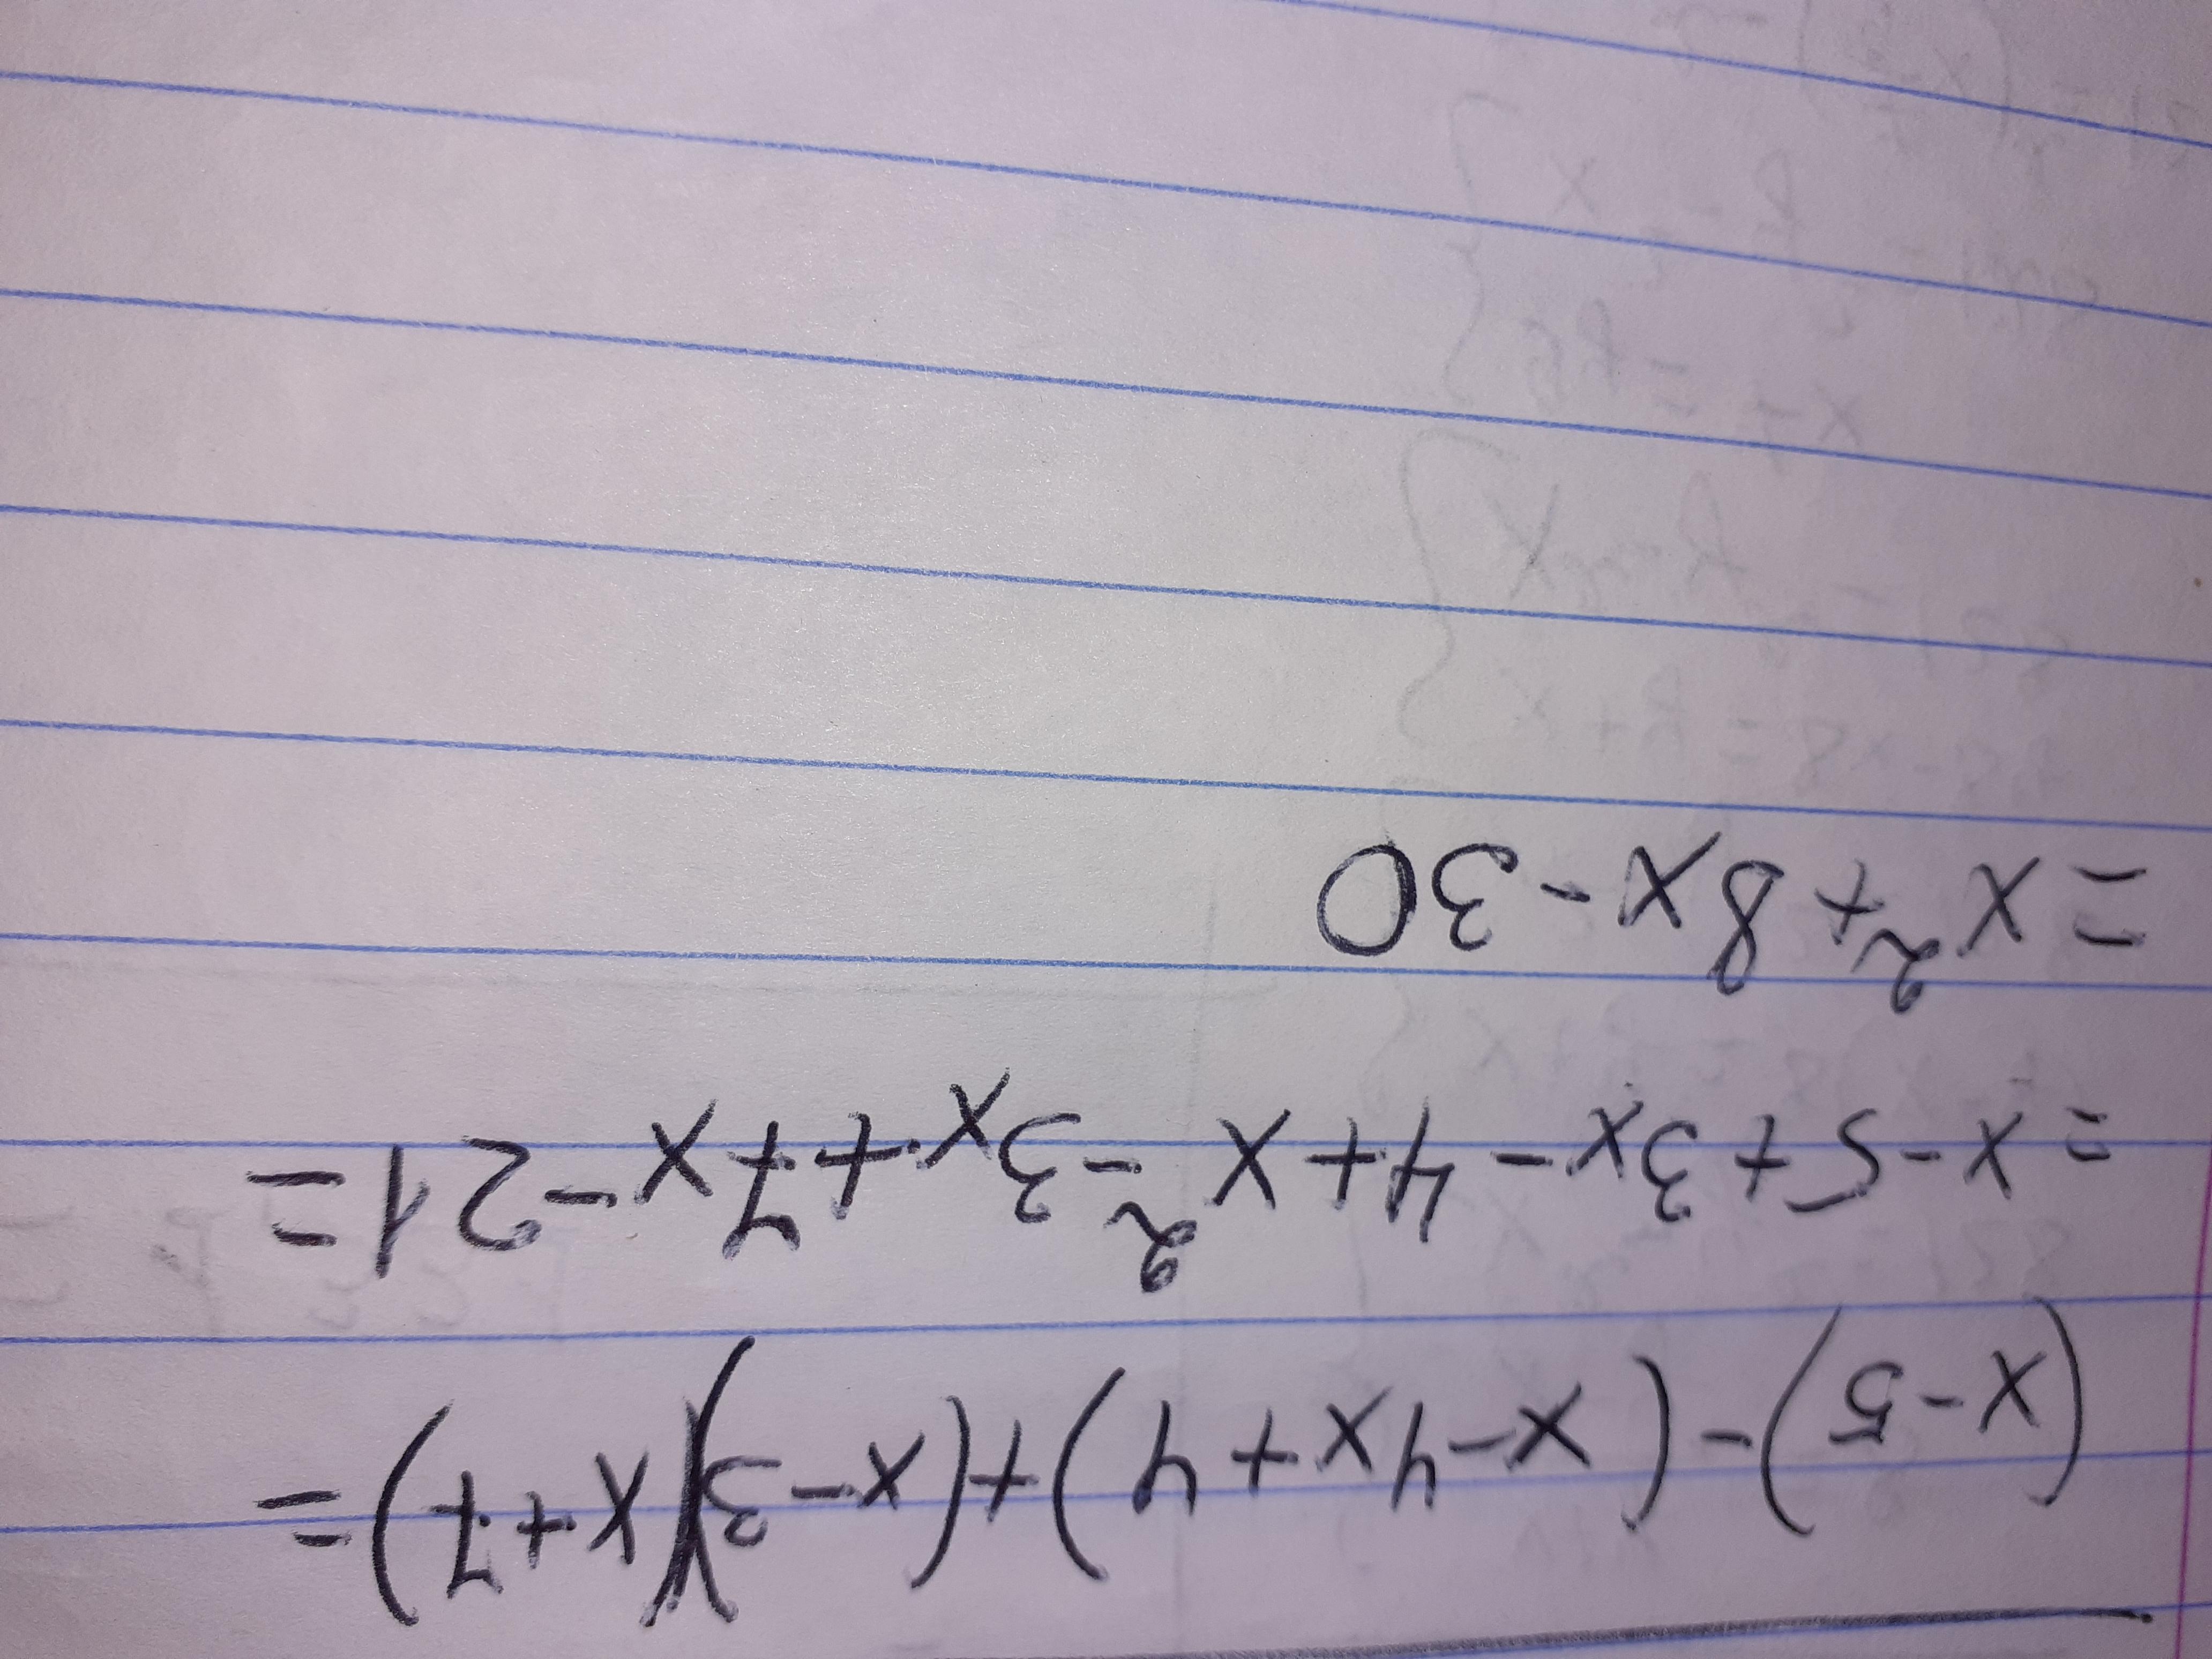 (x-5)-(x-4x+4)+(x-3)(x+7)=
=x-5+3x-4+x²-3x+7x-21=
=x²+8x-30